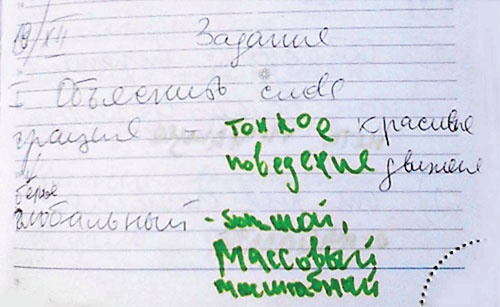 19/XII Задание
I Объяснить слова
грация - тонкое красивые
поведение движения
глобальный - большой,
Массовый
масштабный